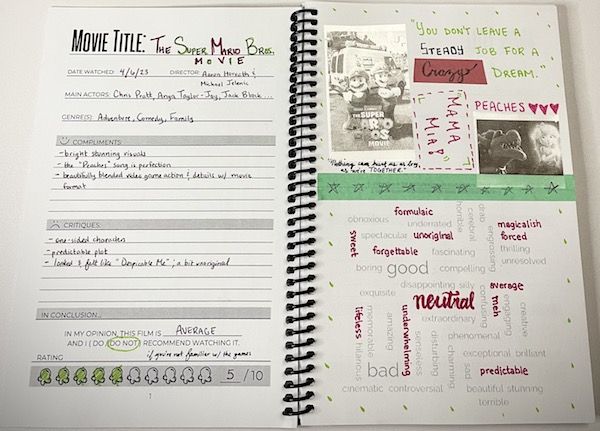 MOVIE TITLE: THE SUPER MARIO BROS.
MOVIE
DATE WATCHED: 4/6/23 DIRECTOR: Aaron Horvath &
Michael Jelenic
MAIN ACTORS: Chris Pratt, Anya Taylor-Joy, Jack Black ...
GENRE(S): Adventure, Comedy, Family
COMPLIMENTS:
- bright stunning visuals
- the "Peaches" song is perfection
- beautifully blended video game action & details w/ movie
format
CRITIQUES:
- one-sided characters
- predictable plot
- looked & felt like "Despicable Me"; a bit unoriginal
IN CONCLUSION...
IN MY OPINION, THIS FILM IS AVERAGE
AND I (DO /DO NOT) RECOMMEND WATCHING IT.
if you're not familiar w/ the games
RATING
5 /10
"YOU DON'T LEAVE A
STEADY JOB FOR A
Crazy DREAM."
THE SUPER
MOVIE
MAMA
MIA!
PEACHES
"Nothing can hurt us as long
as we're TOGETHER."
formulaic
obnoxious underrated horrible drab cerebral
sweet spectacular unoriginal engrossing magicalish
forced
forgettable fascinating thrilling
boring good compelling unresolved
disappointing silly
exquisite neutral confusing average
meh
lifeless memorable amazing underwhelming extraordinary engaging creative
phenomenal
senseless disturbing charming
hilarious exceptional brilliant
bad sad predictable
cinematic controversial beautiful stunning
terrible